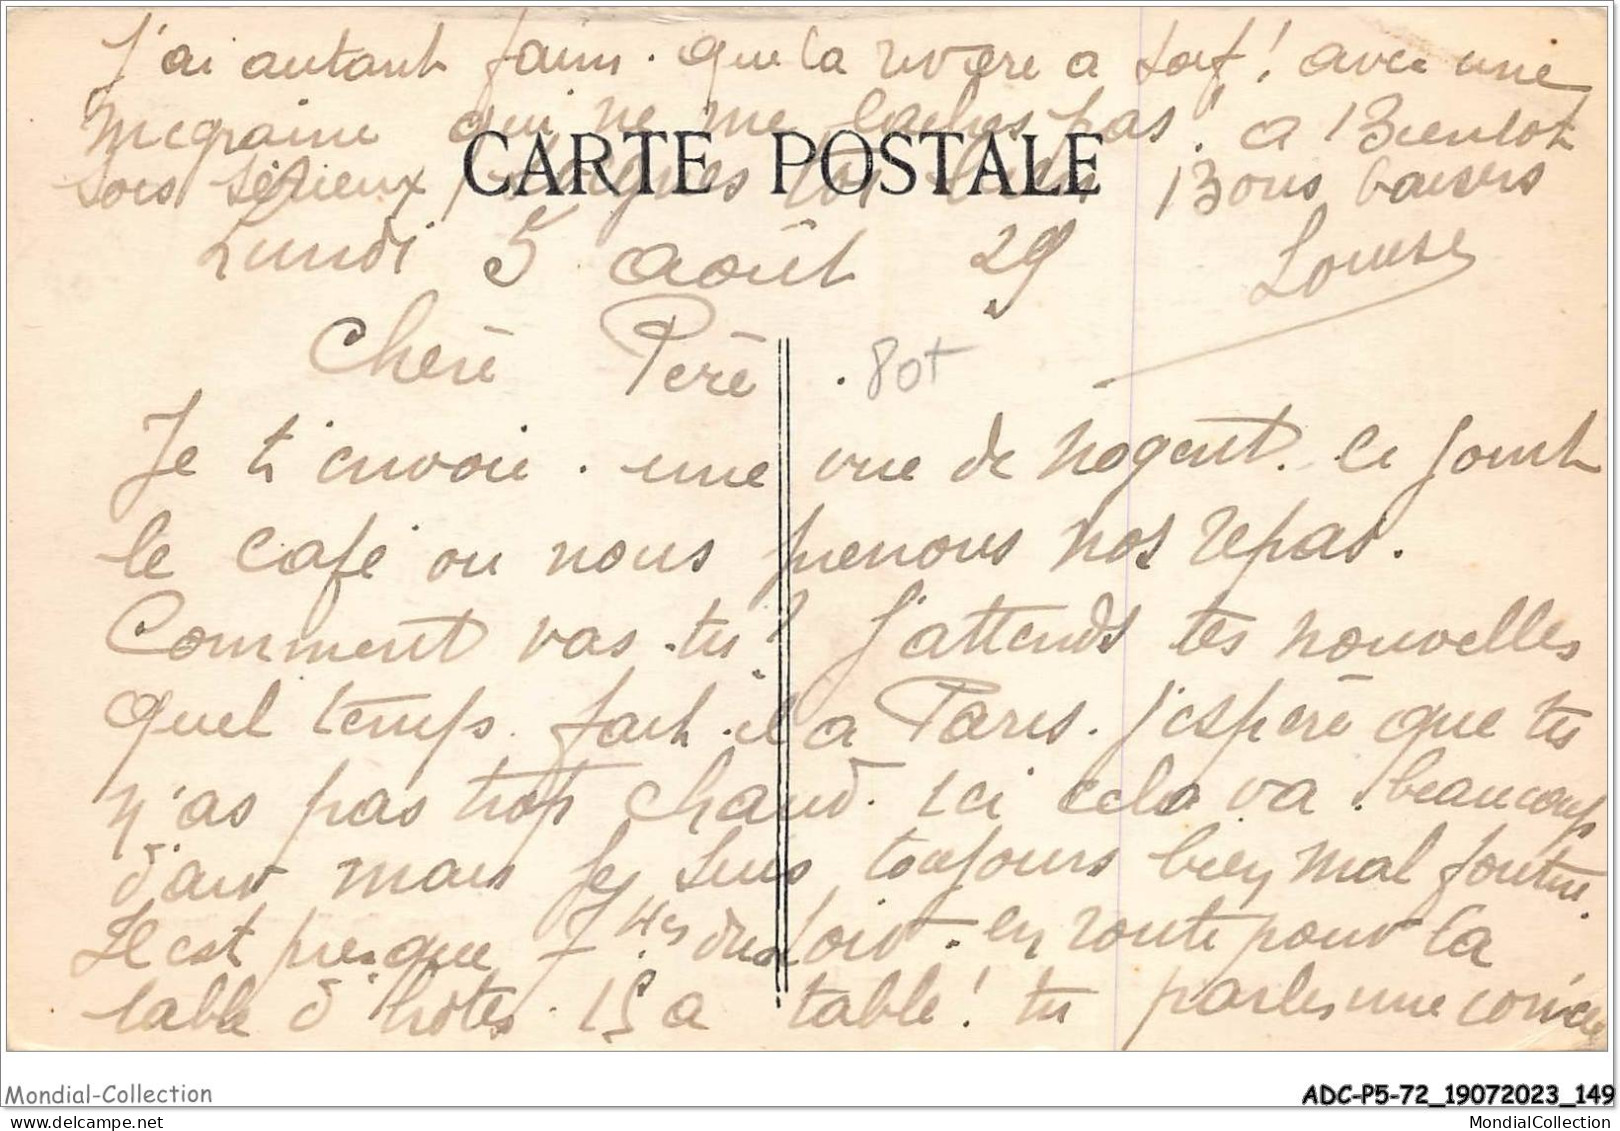 J'ai autant faim. que la rivère a soif! avec une
megraine qui ne me laches pas! a Bientot
sois sérieux Bons baisers
CARTE POSTALE
Lundi 5 août 29
Louise
Cherè Perè
. 80t
Je t'envoie. une vue de Nogent. ci joint
le café ou nous prenons nos repas.
Comment vas-tu? J'attends tes nouvelles
quel temps fait-il a Paris. j'esperè que tu
n'as pas trop chaud. ici cela va. beaucoup
d'air mais je suis toujours bien mal foutue.
Il est presque 7 Hes du soir. en route pour la
table d'hôtes. 15 a table! tu parles une corvée
Mondial-Collection
ADC-P5-72_19072023_149
mondial-collection
MondialCollection